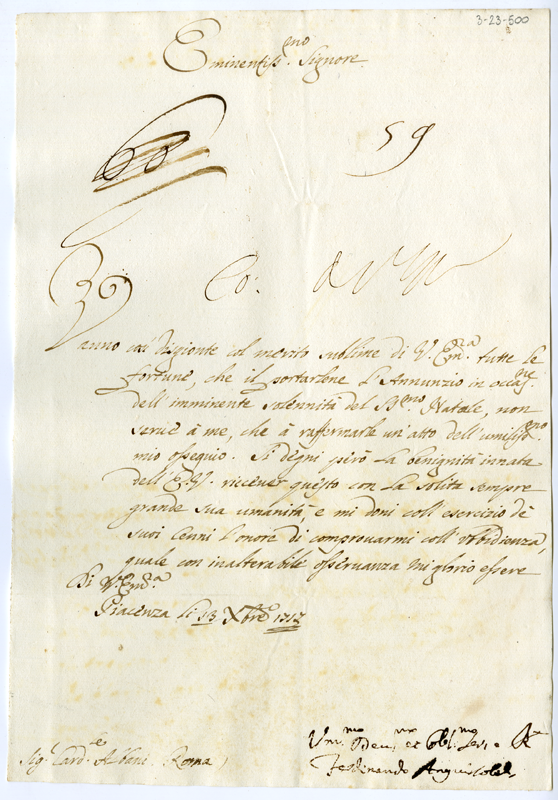 3-23-500
Eminentiss.mo Signore
59
Co:
Vanno così disgionte col merito sublime di V. Em.za tutte le
fortune, che il portarlene l'Annunzio in occas.ne
dell'imminente solennità del S.mo Natale, non
serve à me, che à raffermarle un'atto dell'umiliss.mo
mio ossequio. Si degni però la benignità innata
dell'E.V. riccever questo con la solita sempre
grande sua umanità, e mi doni coll'esercizio de
suoi cenni l'onore di comprouarmi coll'Vbidienza,
quale con inalterabile osseruanza mi glorio essere
Di V. Em.a
Piacenza li 13 Xbre 1717
Vm.mo Deu.mo et Obl.mo Ser.e
Sig.r Card.le Albani. Roma
Ferdinando Anguissola